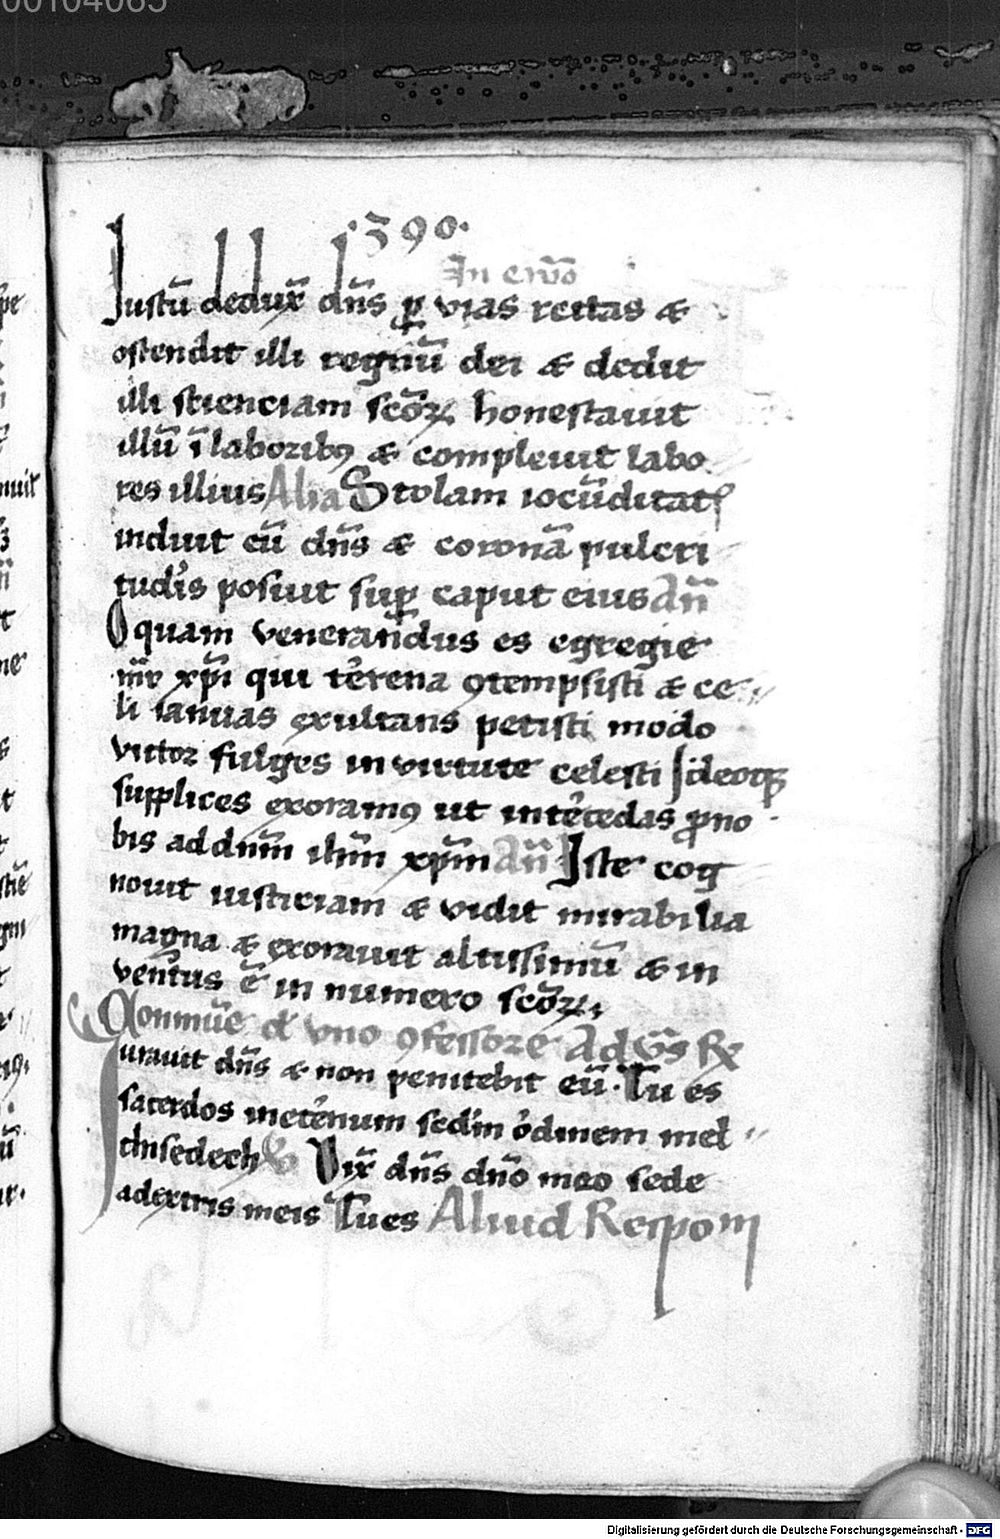 00104065
·390·
In ewo
Iustū deduxͬ dn̄s ꝑ vias rectas &
ostendit illi regnū dei & dedit
illi scienciam scōꝝ honestauit
illū ī laboribꝰ & compleuit labo
res illius Alia Stolam iocūditatꝭ
induit eū dn̄s & coronā pulcri
tudīs posiuit suꝑ caput eius An̄
O quam venerandus es egregie
mr̄ xp̄i qui terrena ꝯtempsisti & ce
li ianuas exultans petisti modo
victor fulges in virtute celesti ideoqꝫ
supplices exoramꝰ ut intercedas ꝓ no
bis ad dn̄m ihm̄ xp̄m An̄ Iste cog
nouit iusticiam & vidit mirabilia
magna & exorauit altissimū & in
ventus ē in numero scōꝝ
Conmūe d' vno ꝯfessore Ad vs̄ R
Iurauit dn̄s & non penitebit eū · Tu es
sacerdos ineternum sedm̄ ordinem mel
chisedech V Dixͬ dn̄s dn̄o meo sede
adextris meis Tu es Aliud Respom
Digitalisierung gefördert durch die Deutsche Forschungsgemeinschaft - DFG